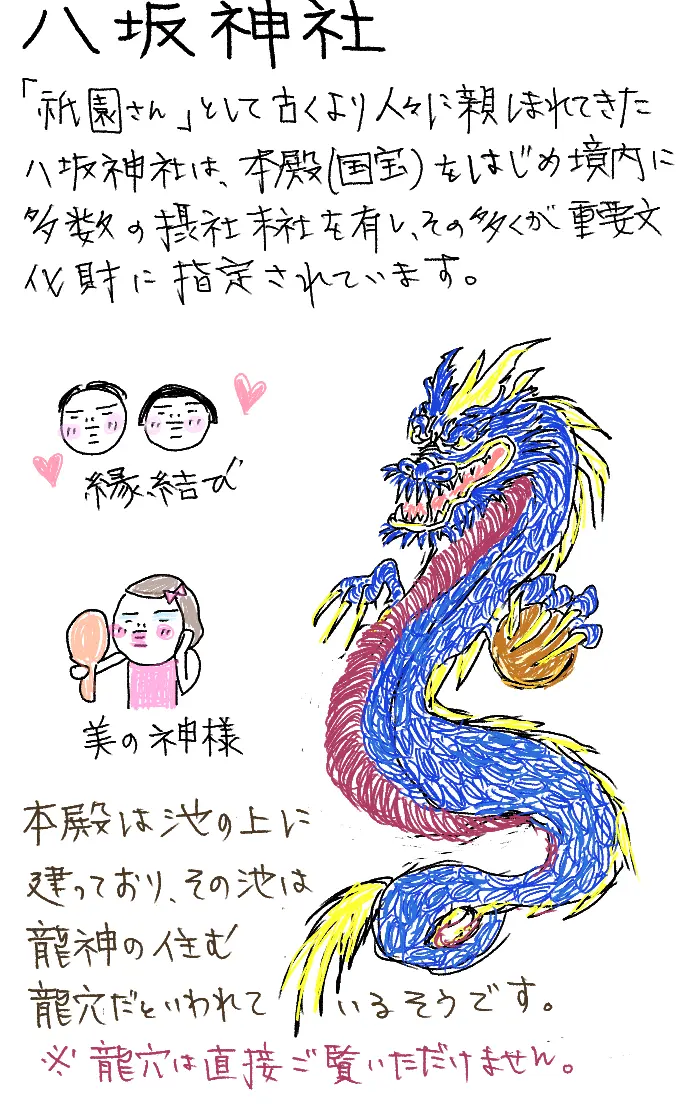 八坂神社
「祇園さん」として古くより人々に親しまれてきた
八坂神社は、本殿(国宝)をはじめ境内に
多数の摂社末社を有し、その多くが重要文
化財に指定されています。
縁結び
美の神様
本殿は池の上に
建っており、その池は
龍神の住む
龍穴だといわれているそうです。
※龍穴は直接ご覧いただけません。